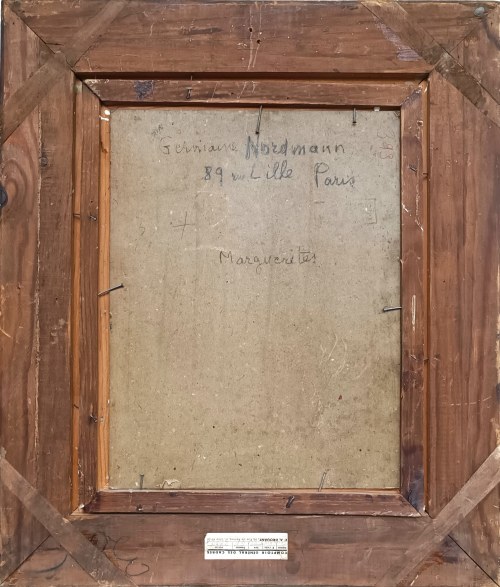 Germaine Nordmann
89 rue Lille Paris
Marguerites
COMPTOIR GÉNÉRAL DES CADRES